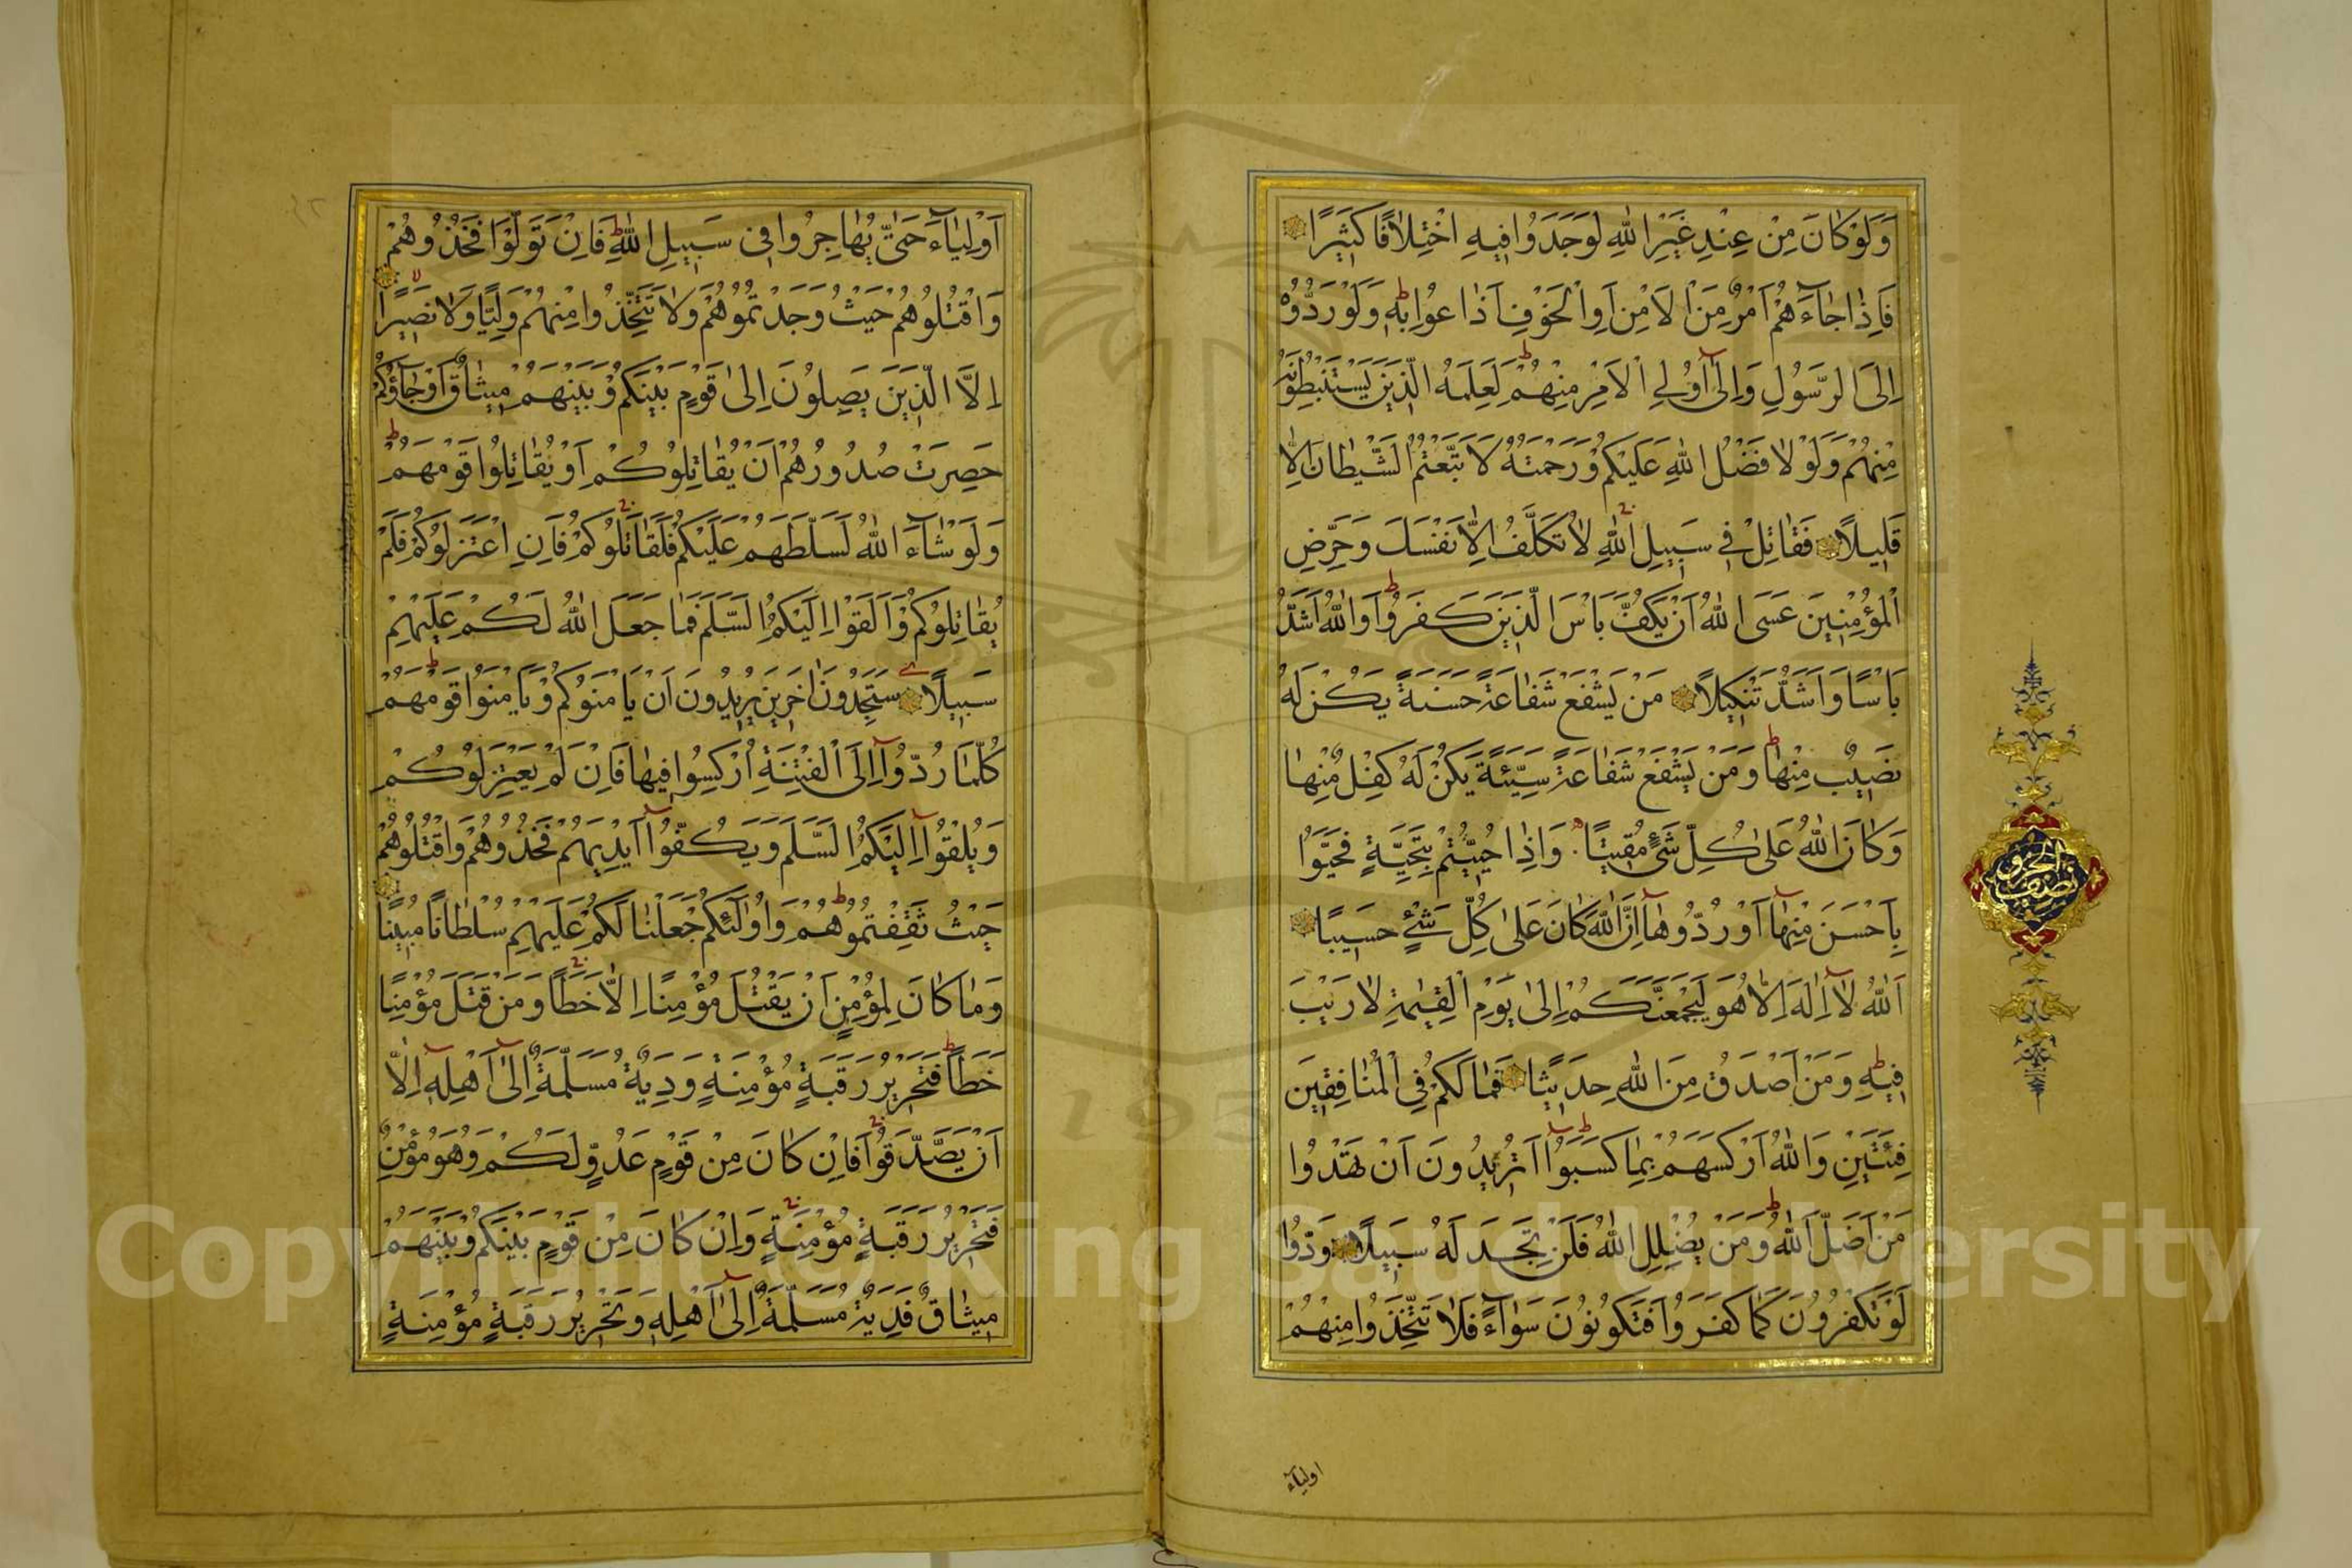 وَلَوْ كَانَ مِنْ عِنْدِ غَيْرِ اللّٰهِ لَوَجَدُوا فِيهِ اخْتِلَافًا كَثِيرًا
فَاِذَا جَاءَهُمْ اَمْرٌ مِنَ الْاَمْنِ اَوِ الْخَوْفِ اَذَاعُوا بِهِ وَلَوْ رَدُّوهُ
اِلَى الرَّسُولِ وَاِلٰى اُولِى الْاَمْرِ مِنْهُمْ لَعَلِمَهُ الَّذِينَ يَسْتَنْبِطُونَهُ
مِنْهُمْ وَلَوْلَا فَضْلُ اللّٰهِ عَلَيْكُمْ وَرَحْمَتُهُ لَاتَّبَعْتُمُ الشَّيْطَانَ اِلَّا
قَلِيلًا فَقَاتِلْ فِى سَبِيلِ اللّٰهِ لَا تُكَلَّفُ اِلَّا نَفْسَكَ وَحَرِّضِ
الْمُؤْمِنِينَ عَسَى اللّٰهُ اَنْ يَكُفَّ بَاْسَ الَّذِينَ كَفَرُوا وَاللّٰهُ اَشَدُّ
بَاْسًا وَاَشَدُّ تَنْكِيلًا مَنْ يَشْفَعْ شَفَاعَةً حَسَنَةً يَكُنْ لَهُ
نَصِيبٌ مِنْهَا وَمَنْ يَشْفَعْ شَفَاعَةً سَيِّئَةً يَكُنْ لَهُ كِفْلٌ مِنْهَا
وَكَانَ اللّٰهُ عَلٰى كُلِّ شَىْءٍ مُقِيتًا وَاِذَا حُيِّيتُمْ بِتَحِيَّةٍ فَحَيُّوا
بِاَحْسَنَ مِنْهَا اَوْ رُدُّوهَا اِنَّ اللّٰهَ كَانَ عَلٰى كُلِّ شَىْءٍ حَسِيبًا
اَللّٰهُ لَا اِلٰهَ اِلَّا هُوَ لَيَجْمَعَنَّكُمْ اِلٰى يَوْمِ الْقِيٰمَةِ لَا رَيْبَ
فِيهِ وَمَنْ اَصْدَقُ مِنَ اللّٰهِ حَدِيثًا فَمَا لَكُمْ فِى الْمُنَافِقِينَ
فِئَتَيْنِ وَاللّٰهُ اَرْكَسَهُمْ بِمَا كَسَبُوا اَتُرِيدُونَ اَنْ تَهْدُوا
مَنْ اَضَلَّ اللّٰهُ وَمَنْ يُضْلِلِ اللّٰهُ فَلَنْ تَجِدَ لَهُ سَبِيلًا وَدُّوا
لَوْ تَكْفُرُونَ كَمَا كَفَرُوا فَتَكُونُونَ سَوَاءً فَلَا تَتَّخِذُوا مِنْهُمْ
اولياء
نصف الحزب
اَوْلِيَاءَ حَتّٰى يُهَاجِرُوا فِى سَبِيلِ اللّٰهِ فَاِنْ تَوَلَّوْا فَخُذُوهُمْ
وَاقْتُلُوهُمْ حَيْثُ وَجَدْتُمُوهُمْ وَلَا تَتَّخِذُوا مِنْهُمْ وَلِيًّا وَلَا نَصِيرًا
اِلَّا الَّذِينَ يَصِلُونَ اِلٰى قَوْمٍ بَيْنَكُمْ وَبَيْنَهُمْ مِيثَاقٌ اَوْ جَاؤُكُمْ
حَصِرَتْ صُدُورُهُمْ اَنْ يُقَاتِلُوكُمْ اَوْ يُقَاتِلُوا قَوْمَهُمْ
وَلَوْ شَاءَ اللّٰهُ لَسَلَّطَهُمْ عَلَيْكُمْ فَلَقَاتَلُوكُمْ فَاِنِ اعْتَزَلُوكُمْ فَلَمْ
يُقَاتِلُوكُمْ وَاَلْقَوْا اِلَيْكُمُ السَّلَمَ فَمَا جَعَلَ اللّٰهُ لَكُمْ عَلَيْهِمْ
سَبِيلًا سَتَجِدُونَ اٰخَرِينَ يُرِيدُونَ اَنْ يَاْمَنُوكُمْ وَيَاْمَنُوا قَوْمَهُمْ
كُلَّمَا رُدُّوا اِلَى الْفِتْنَةِ اُرْكِسُوا فِيهَا فَاِنْ لَمْ يَعْتَزِلُوكُمْ
وَيُلْقُوا اِلَيْكُمُ السَّلَمَ وَيَكُفُّوا اَيْدِيَهُمْ فَخُذُوهُمْ وَاقْتُلُوهُمْ
حَيْثُ ثَقِفْتُمُوهُمْ وَاُولٰئِكُمْ جَعَلْنَا لَكُمْ عَلَيْهِمْ سُلْطَانًا مُبِينًا
وَمَا كَانَ لِمُؤْمِنٍ اَنْ يَقْتُلَ مُؤْمِنًا اِلَّا خَطَأً وَمَنْ قَتَلَ مُؤْمِنًا
خَطَأً فَتَحْرِيرُ رَقَبَةٍ مُؤْمِنَةٍ وَدِيَةٌ مُسَلَّمَةٌ اِلٰى اَهْلِهِ اِلَّا
اَنْ يَصَّدَّقُوا فَاِنْ كَانَ مِنْ قَوْمٍ عَدُوٍّ لَكُمْ وَهُوَ مُؤْمِنٌ
فَتَحْرِيرُ رَقَبَةٍ مُؤْمِنَةٍ وَاِنْ كَانَ مِنْ قَوْمٍ بَيْنَكُمْ وَبَيْنَهُمْ
مِيثَاقٌ فَدِيَةٌ مُسَلَّمَةٌ اِلٰى اَهْلِهِ وَتَحْرِيرُ رَقَبَةٍ مُؤْمِنَةٍ
Copyright © King Saud University